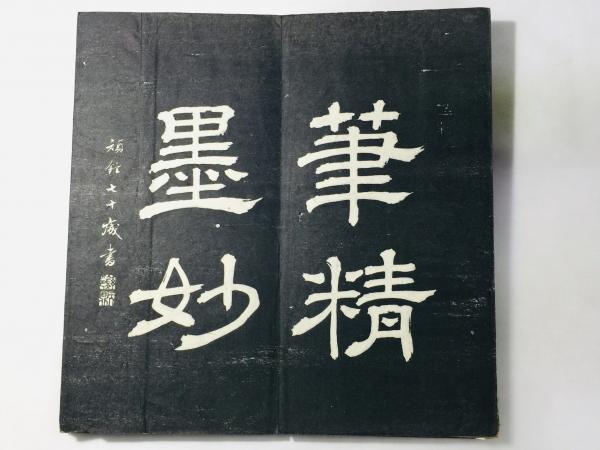 筆精
墨妙
七十歲書